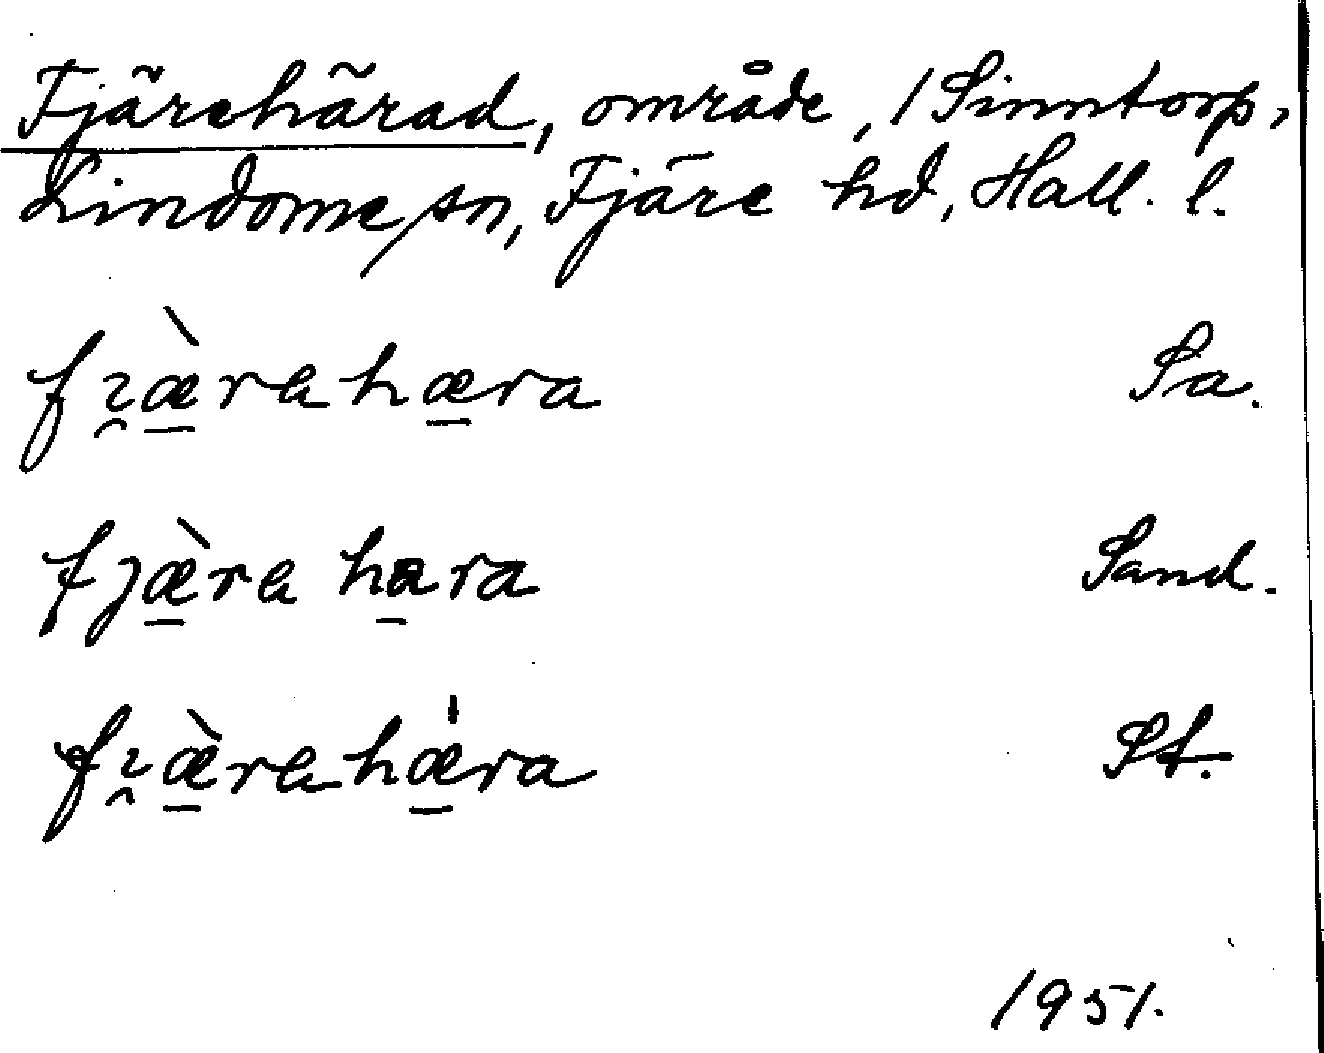 Fjärehärad, område, / Sinntorp,
Lindome sn, Fjäre hd, Hall. l.
fɪ̯æ̱̀rahæ̱ra Sa.
fjæ̱̀ra ha̱ra Sand.
fɪ̯æ̱̀rahǽ̱ra St.
1951.